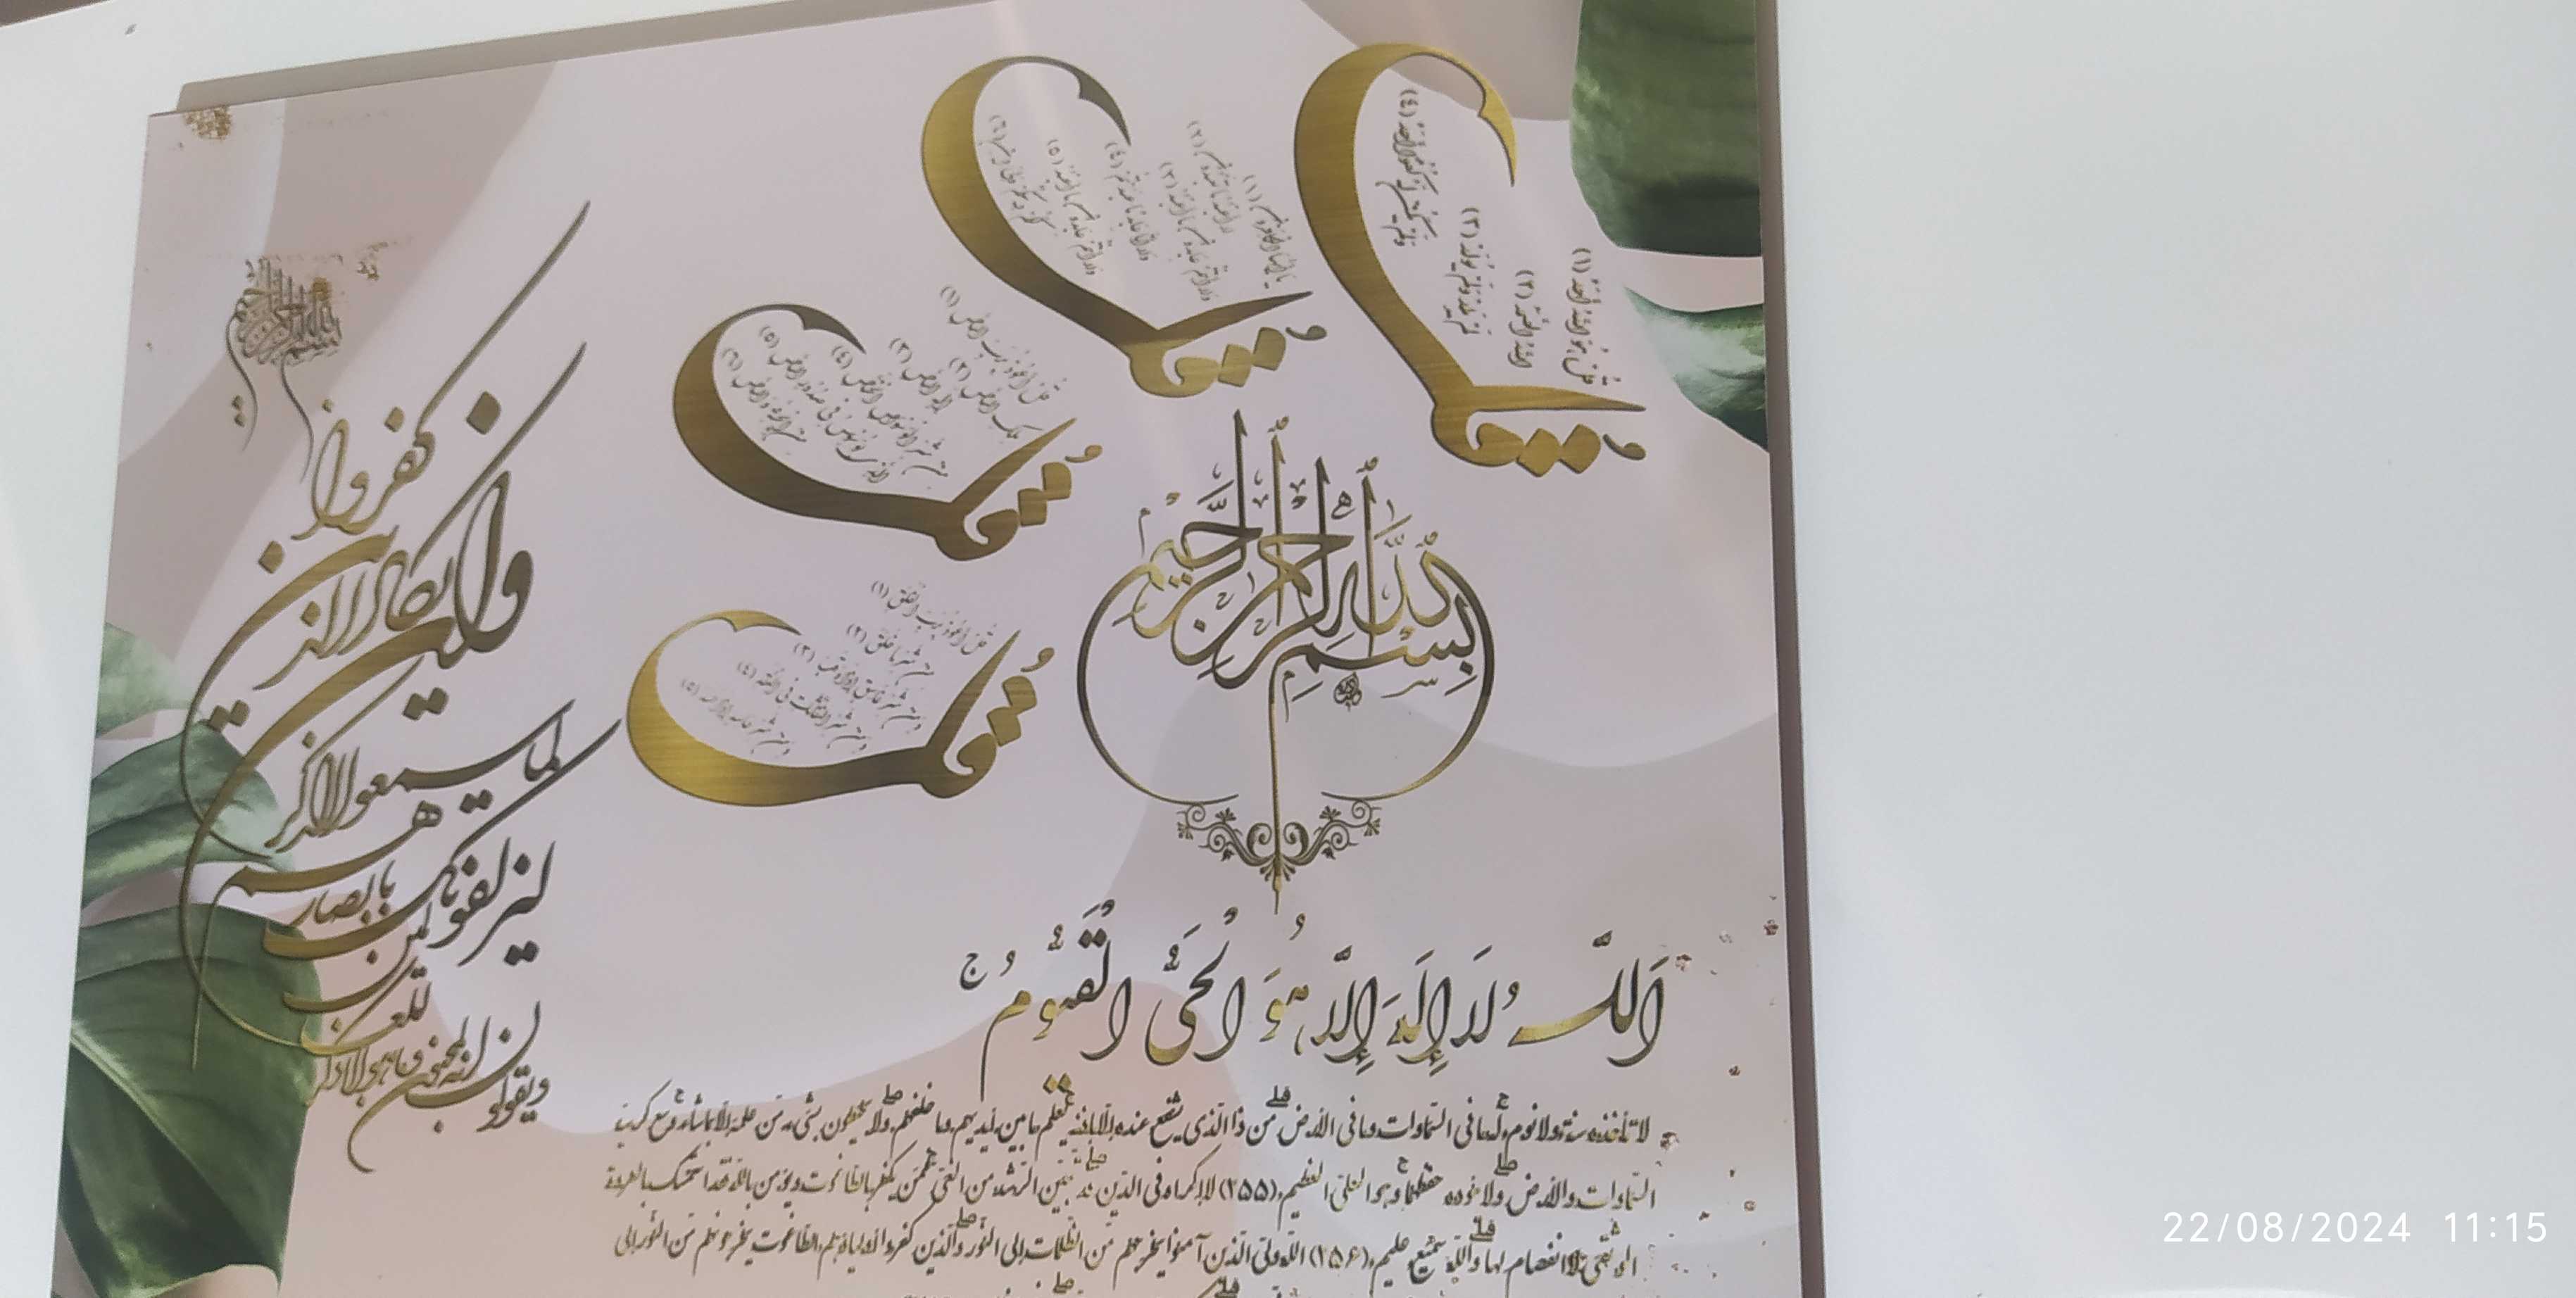 قُلْ هُوَ اللَّهُ أَحَدٌ (۱)
اللَّهُ الصَّمَدُ (۲)
لَمْ يَلِدْ وَلَمْ يُولَدْ (۳)
وَلَمْ يَكُنْ لَهُ كُفُوًا أَحَدٌ (٤)
قُل
يا أيها الكافرون (۱)
لا أعبد ما تعبدون (۲)
ولا أنتم عابدون ما أعبد (۳)
ولا أنا عابد ما عبدتم (٤)
ولا أنتم عابدون ما أعبد (۵)
لكم دينكم ولي دين (٦)
قُل
قل أعوذ برب الناس (۱)
ملك الناس (۲)
إله الناس (۳)
من شر الوسواس الخناس (٤)
الذي يوسوس في صدور الناس (۵)
من الجنة والناس (٦)
قُل
قل أعوذ برب الفلق (۱)
من شر ما خلق (۲)
ومن شر غاسق إذا وقب (۳)
ومن شر النفاثات في العقد (٤)
ومن شر حاسد إذا حسد (۵)
قُل
بِسْمِ اللَّهِ الرَّحْمٰنِ الرَّحِيْمِ
بسم الله الرحمن الرحيم
وان يكاد الذين كفروا
ليزلقونك بابصارهم لما سمعوا الذكر
ويقولون انه لمجنون وما هو الا ذكر للعالمين
اَللّٰهُ لَا إِلَهَ إِلَّا هُوَ الْحَيُّ الْقَيُّومُ ج
لا تأخذه سنة ولا نوم له ما في السماوات وما في الأرض من ذا الذي يشفع عنده إلا بإذنه يعلم ما بين أيديهم وما خلفهم ولا يحيطون بشيء من علمه إلا بما شاء وسع كرسيه
السماوات والأرض ولا يؤوده حفظهما وهو العلي العظيم (۲۵۵) لا إكراه في الدين قد تبين الرشد من الغي فمن يكفر بالطاغوت ويؤمن بالله فقد استمسك بالعروة
الوثقى لا انفصام لها والله سميع عليم (۲۵۶) الله ولي الذين آمنوا يخرجهم من الظلمات إلى النور والذين كفروا أولياؤهم الطاغوت يخرجونهم من النور إلى
22/08/2024 11:15